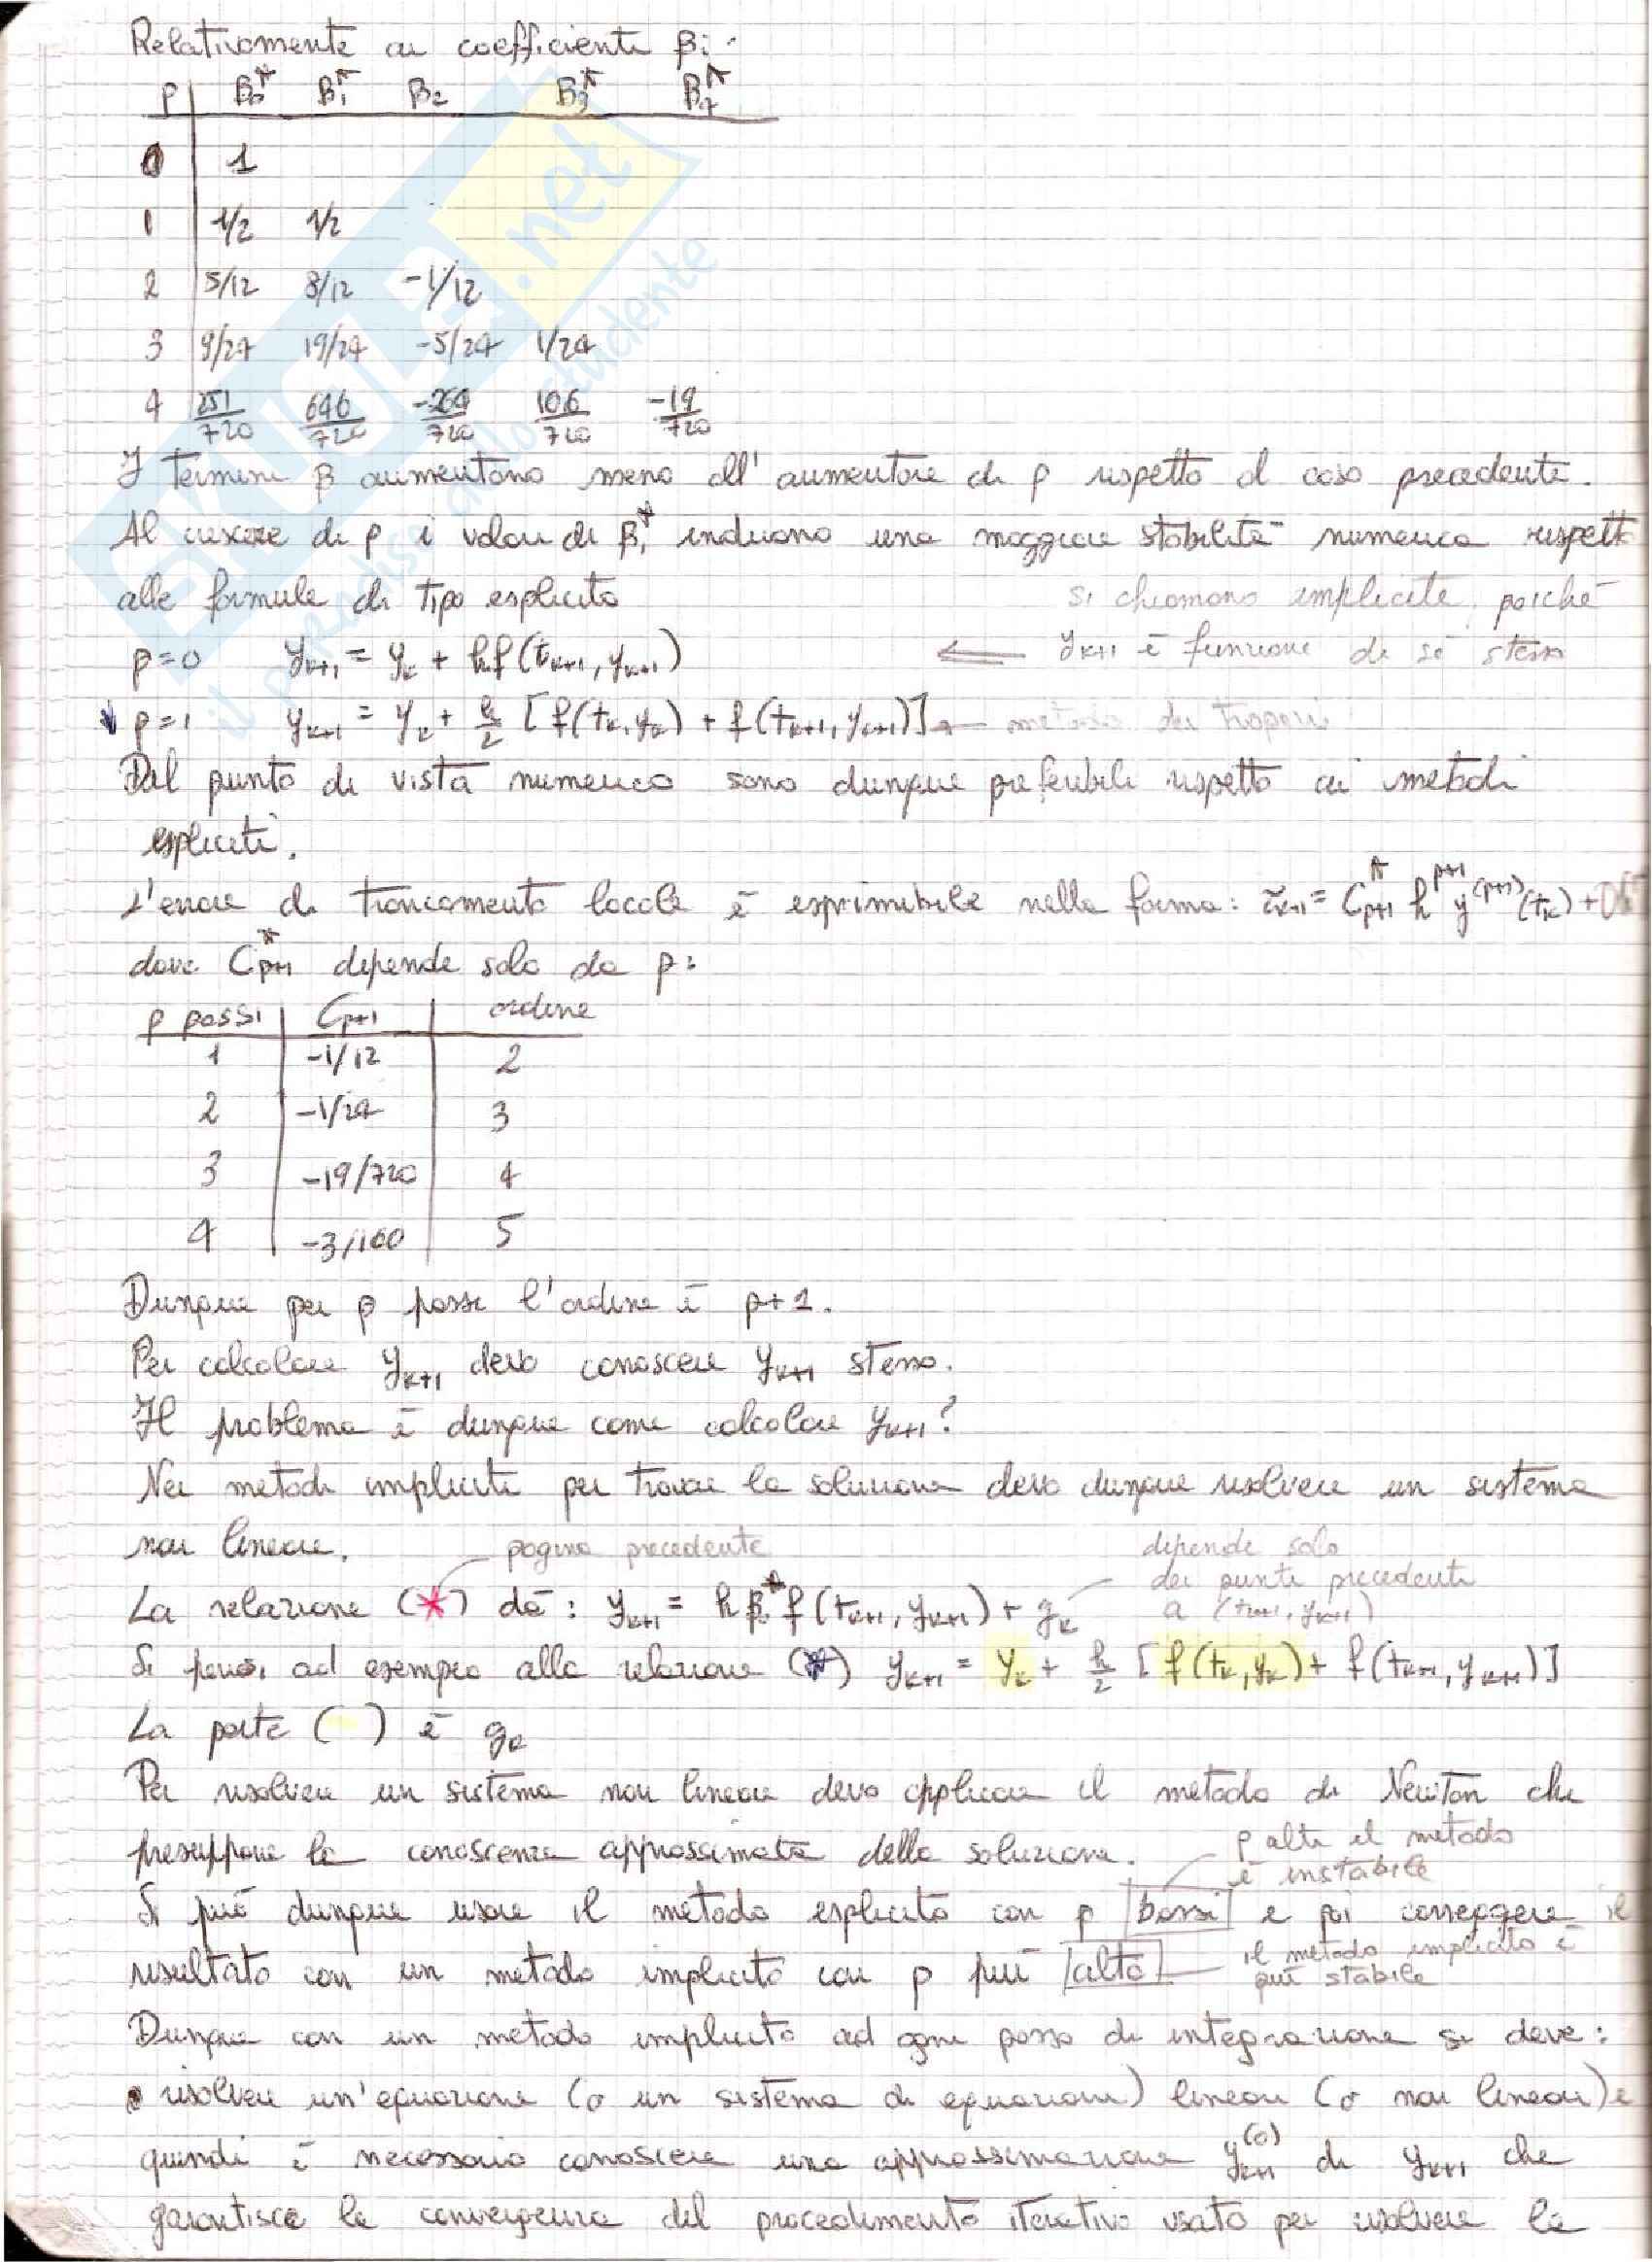 Relativamente ai coefficienti βi:
p | β0* β1* β2 β3* β4*
0 | 1
1 | 1/2 1/2
2 | 5/12 8/12 -1/12
3 | 9/24 19/24 -5/24 1/24
4 | 251/720 646/720 -264/720 106/720 -19/720
I termini β aumentano meno all'aumentare di p rispetto al caso precedente.
Al crescere di p i valori di βi* inducono una maggiore stabilità numerica rispetto
alle formule di tipo esplicito
si chiamano implicite, poiché
p=0 yk+1 = yk + hf(tk+1, yk+1) ⇐ yk+1 è funzione di sé stessa
p=1 yk+1 = yk + h/2 [f(tk, yk) + f(tk+1, yk+1)] ← metodo dei trapezi
Dal punto di vista numerico sono dunque preferibili rispetto ai metodi
espliciti.
L'errore di troncamento locale è esprimibile nella forma: τk+1 = C*p+1 h^p+1 y^(p+1)(tk) +
dove C*p+1 depende solo da p:
p passi | Cp+1 | ordine
1 | -1/12 | 2
2 | -1/24 | 3
3 | -19/720 | 4
4 | -3/160 | 5
Dunque per p passi l'ordine è p+1.
Per calcolare yk+1 devo conoscere yk+1 stesso.
Il problema è dunque come calcolare yk+1?
Nei metodi impliciti per trovare la soluzione devo dunque risolvere un sistema
non lineare.
pagina precedente
depende solo
dei punti precedenti
a (tk+1, yk+1)
La relazione (*) dà: yk+1 = hβ0* f(tk+1, yk+1) + gk
Si pensi ad esempio alla relazione (*) yk+1 = yk + h/2 [f(tk, yk) + f(tk+1, yk+1)]
La parte ( ) è gk
Per risolvere un sistema non lineare devo applicare il metodo di Newton che
presuppone la conoscenza approssimata della soluzione.
p alti il metodo
è instabile
Si può dunque usare il metodo esplicito con p bassi e poi correggere il
resultato con un metodo implicito con p più alto
il metodo implicito è
più stabile
Dunque con un metodo implicito ad ogni passo di integrazione si deve:
• risolvere un'equazione (o un sistema di equazioni) lineari (o non lineari) e
quindi è necessario conoscere una approssimazione y(0)k+1 di yk+1 che
garantisca la convergenza del procedimento iterativo usato per risolvere la